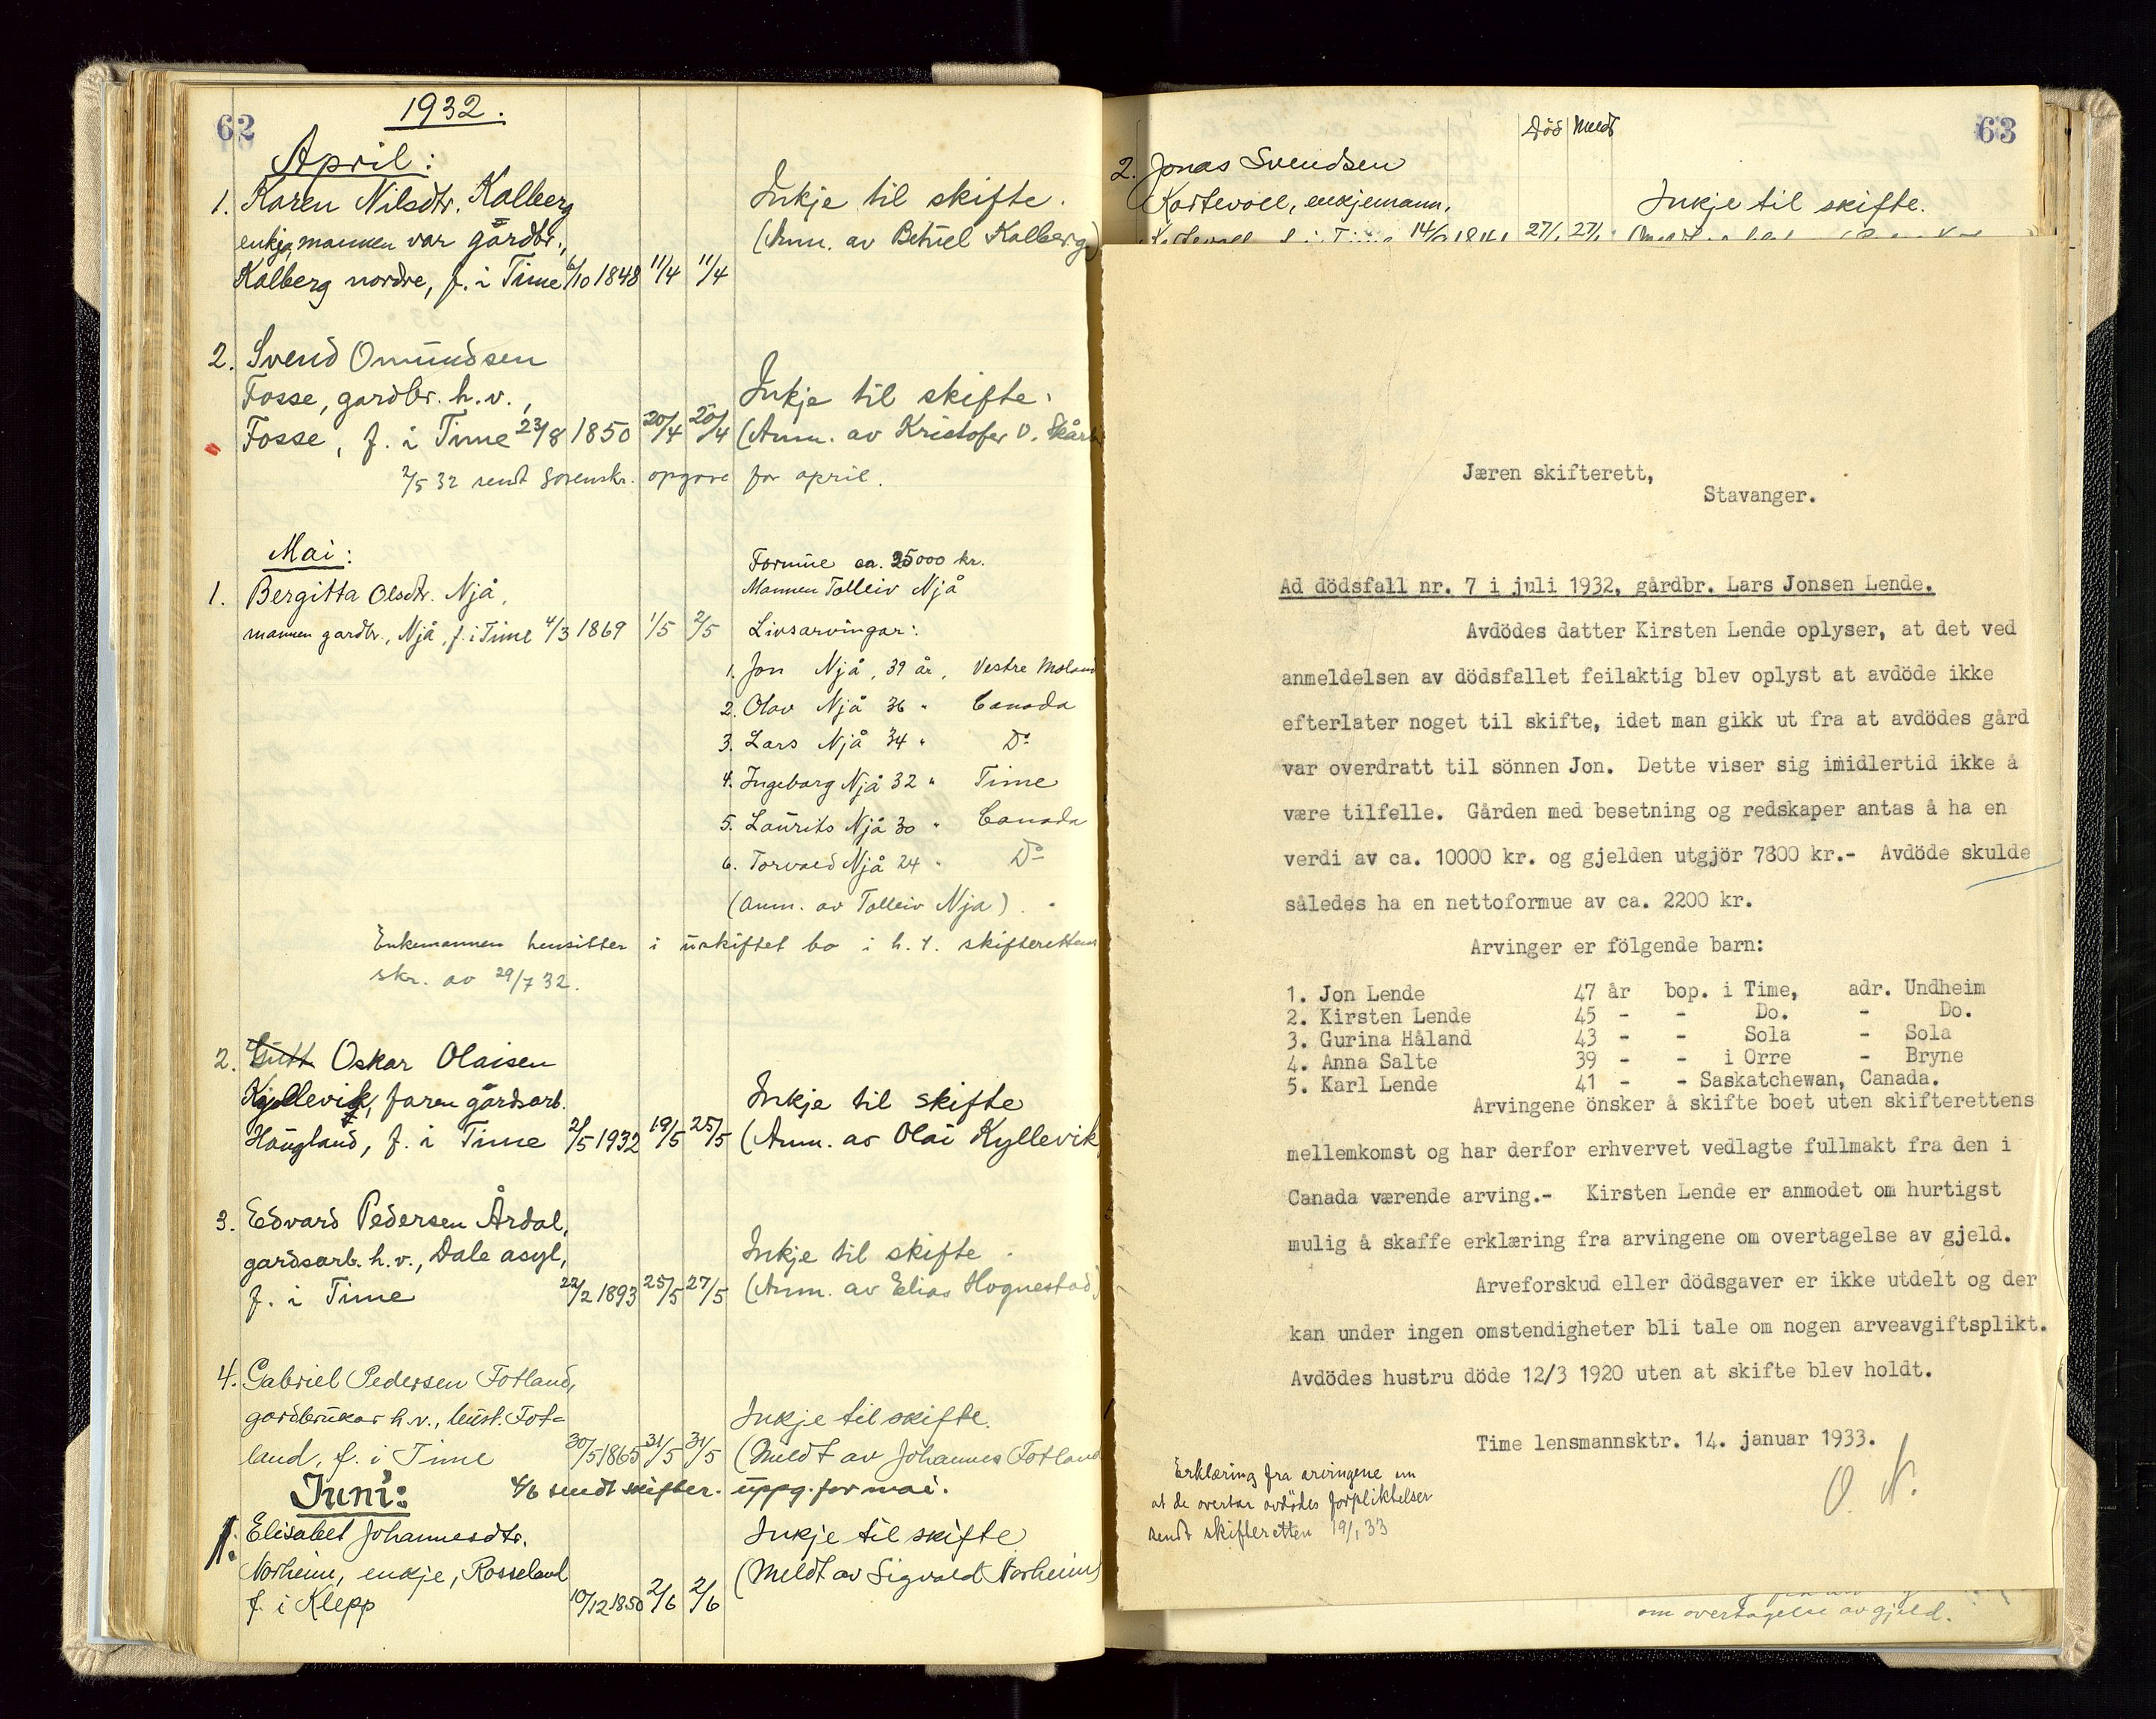 62
1932.
April:
1. Karen Nilsdtr. Kalberg
enkja, mannen var gårdbr.,
Kalberg nordre, f. i Time 6/10 1848 11/4 11/4
Inkje til skifte.
(Anm. av Betuel Kalberg)
2. Svend Omundsen
Fosse, gardbr. h.v.,
Fosse, f. i Time 23/8 1850 20/4 20/4
Inkje til skifte.
(Anm. av Kristofer O.
2/5 32 sendt Sorenskr. opgave for april.
Mai:
1. Bergitta Olsdtr. Njå,
mannen gardbr., Njå, f. i Time 4/3 1869 1/5 2/5
Formue ca. 25000 kr.
Mannen Tolleiv Njå
Livsarvingar:
1. Jon Njå, 39 år, Vestre Moland
2. Olav Njå 36 " Canada
3. Lars Njå 34 " Do
4. Ingeborg Njå 32 " Time
5. Laurits Njå 30 " Canada
6. Torvald Njå 24 " Do
(Anm. av Tolleiv Njå).
Enkemannen hensitter i uskiftet bo i h. t. skifterettens
skr. av 29/7 32.
2. Gutt Oskar Olaisen
Kyllevik, faren gårdsarb.
Haugland, f. i Time 21/5 1932 19/5 25/5
Inkje til skifte
(Anm. av Olai Kyllevik
3. Edvard Pedersen Årdal,
gardsarb. h.v., Dale asyl,
f. i Time 22/2 1893 25/5 27/5
Inkje til skifte.
(Anm. av Elias Hognestad)
4. Gabriel Pedersen Fotland,
gardbrukar h.v., hust. Fot=
land, f. i Time 30/5 1865 31/5 31/5
Inkje til skifte.
(Meldt av Johannes Fotland
4/6 sendt skifter. uppg. for mai.
Juni:
1. Elisabet Johannesdtr.
Norheim, enkje, Rosseland
f. i Klepp 10/12 1850 2/6 2/6
Inkje til skifte
(Meldt av Sigvald Norheim)
63
Död Meldt
2. Jonas Svendsen
Kartevoll, enkjemann,
14/9 1841 27/ 27/
Inkje til skifte.
Jæren skifterett,
Stavanger.
Ad dödsfall nr. 7 i juli 1932, gårdbr. Lars Jonsen Lende.
Avdödes datter Kirsten Lende oplyser, at det ved
anmeldelsen av dödsfallet feilaktig blev oplyst at avdöde ikke
efterlater noget til skifte, idet man gikk ut fra at avdödes gård
var overdratt til sönnen Jon. Dette viser sig imidlertid ikke å
være tilfelle. Gården med besetning og redskaper antas å ha en
verdi av ca. 10000 kr. og gjelden utgjör 7800 kr.- Avdöde skulde
således ha en nettoformue av ca. 2200 kr.
Arvinger er fölgende barn:
1. Jon Lende 47 år bop. i Time, adr. Undheim
2. Kirsten Lende 45 - - Do. - Do.
3. Gurina Håland 43 - - Sola - Sola
4. Anna Salte 39 - - i Orre - Bryne
5. Karl Lende 41 - - Saskatchewan, Canada.
Arvingene önsker å skifte boet uten skifterettens
mellemkomst og har derfor erhvervet vedlagte fullmakt fra den i
Canada værende arving.- Kirsten Lende er anmodet om hurtigst
mulig å skaffe erklæring fra arvingene om overtagelse av gjeld.
Arveforskud eller dödsgaver er ikke utdelt og der
kan under ingen omstendigheter bli tale om nogen arveavgiftsplikt.
Avdödes hustru döde 12/3 1920 uten at skifte blev holdt.
Time lensmannsktr. 14. januar 1933.
O. N.
Erklæring fra arvingene om
at de overtar avdödes forpliktelser
sendt skifteretten 19/1 33
om overtagelse av gjeld.